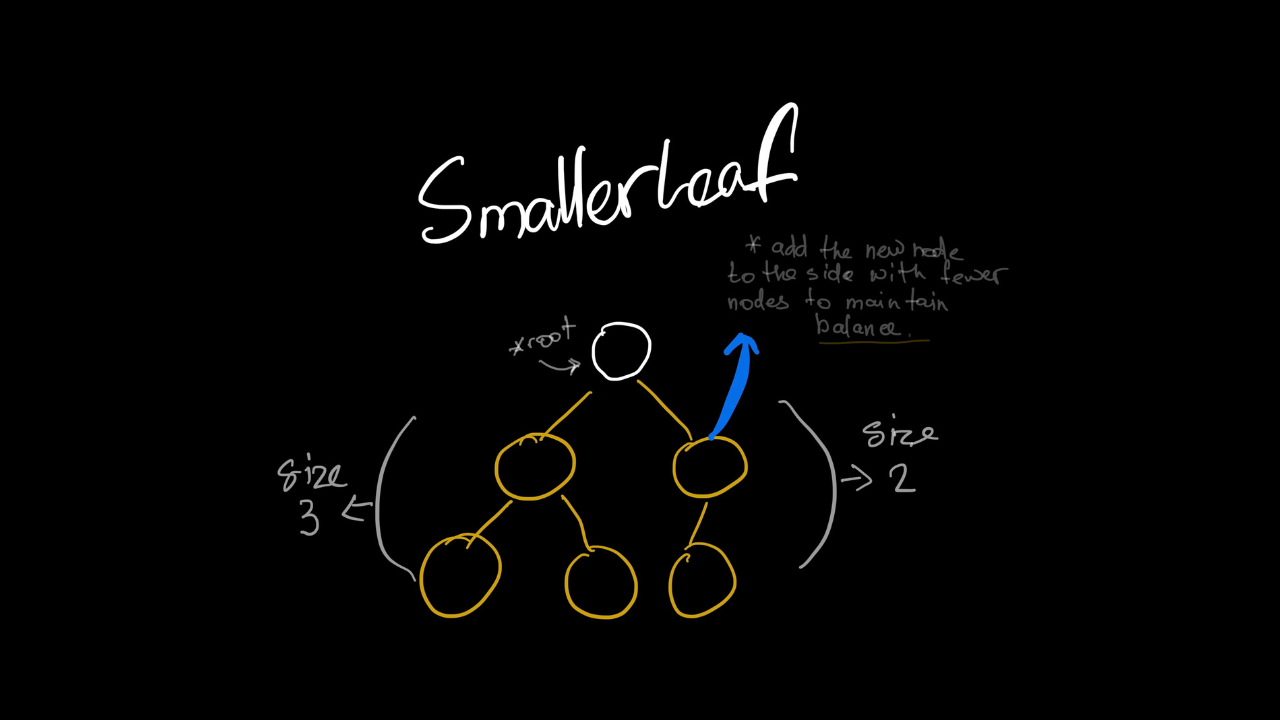 Smallerleaf
* add the new node
to the side with fewer
nodes to maintain
balance.
*root
size
3
size
2